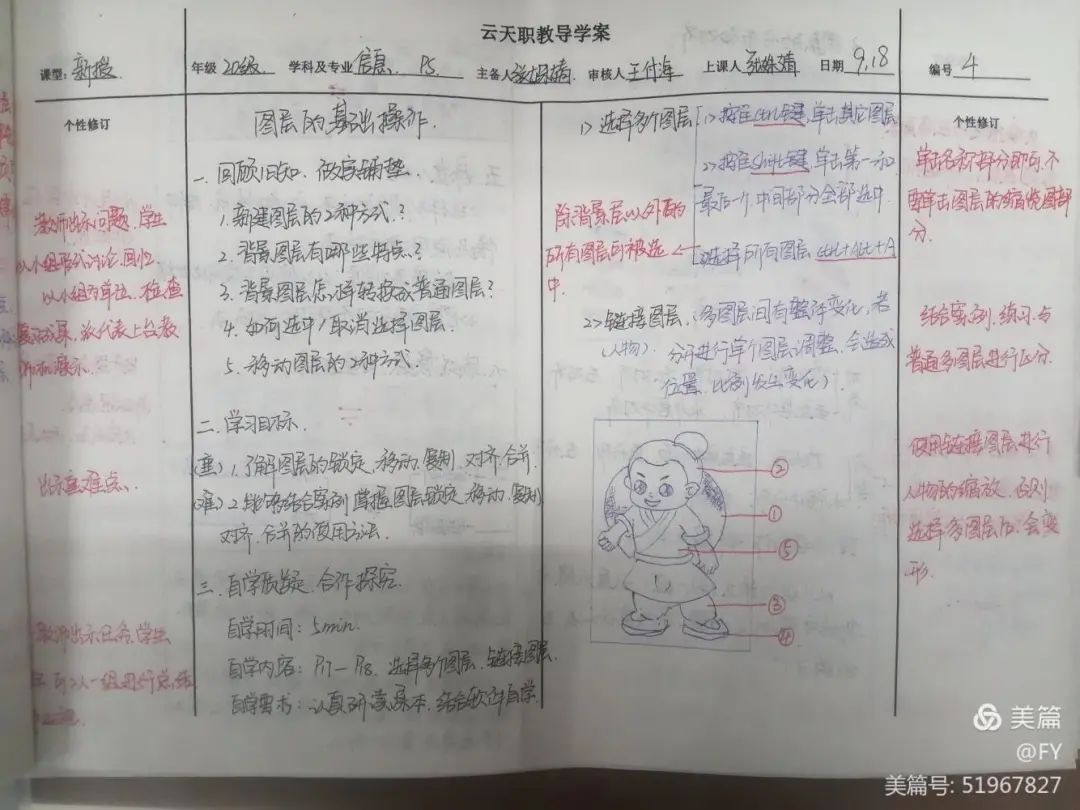 云天职教导学案
课型: 新授
年级 20级 学科及专业 信息 PS 主备人 审核人 王付海 上课人 日期 9.18
编号 4
个性修订
教师出示问题,学生
以小组形式讨论,回忆.
以小组为单位,检查
展示成果,派代表上台教
师机展示.
出示重难点.
教师出示任务,学生
图层的基础操作.
一. 回顾旧知. 做实铺垫.
1. 新建图层的2种方式.?
2. 背景图层有哪些特点.?
3. 背景图层怎样转换成普通图层?
4. 如何选中/取消选择图层.
5. 移动图层的2种方式.
二. 学习目标.
(重) 1. 了解图层的锁定、移动、复制、对齐、合并.
(难) 2. 能够结合案例掌握图层锁定、移动、复制
对齐、合并的使用方法.
三. 自学质疑. 合作探究.
自学时间: 5min.
自学内容: P17—P18. 选择多个图层. 链接图层.
自学要求: 认真研读课本. 结合软件自学.
1> 选择多个图层
1> 按住Ctrl键,单击其它图层
2> 按住Shift键 单击第一和
最后一个,中间部分全部选中.
选择所有图层 Ctrl+Alt+A
除背景层以外的
所有图层可被选
中.
2> 链接图层. (多图层间有整体变化,若
(人物). 分开进行单个图层调整,会造成
位置、比例发生变化)
②
①
⑤
③
④
个性修订
单击名称部分即可,不
要单击图层的缩览图部
分.
结合案例,练习.与
普通多图层进行区分.
使用链接图层进行
人物的缩放,否则
选择多图层后,会变
形.
美篇
@FY
美篇号: 51967827